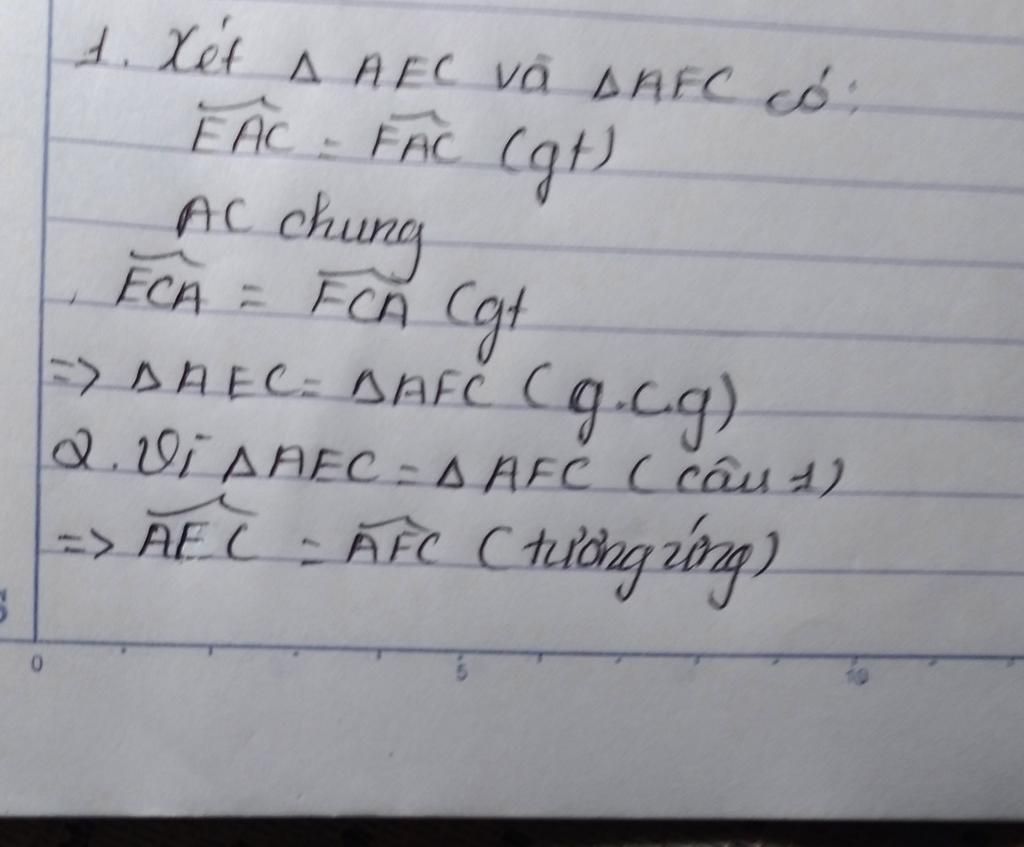 1. Xét Δ AEC và ΔAFC có:
\widehat{EAC} = \widehat{FAC} (gt)
AC chung
\widehat{ECA} = \widehat{FCA} (gt
=> ΔAEC = ΔAFC (g.c.g)
2. Vì ΔAEC = Δ AFC (câu 1)
=> \widehat{AEC} = \widehat{AFC} (tương ứng)
0 5 10